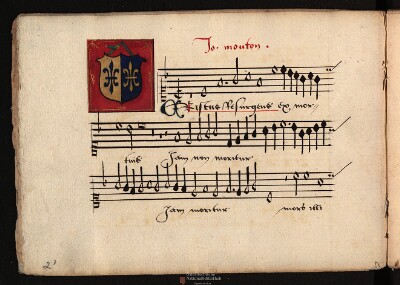 Jo. mouton.
Cristus Resurgens ex mor-
tuis Jam non moritur
Jam moritur mors illi
2v